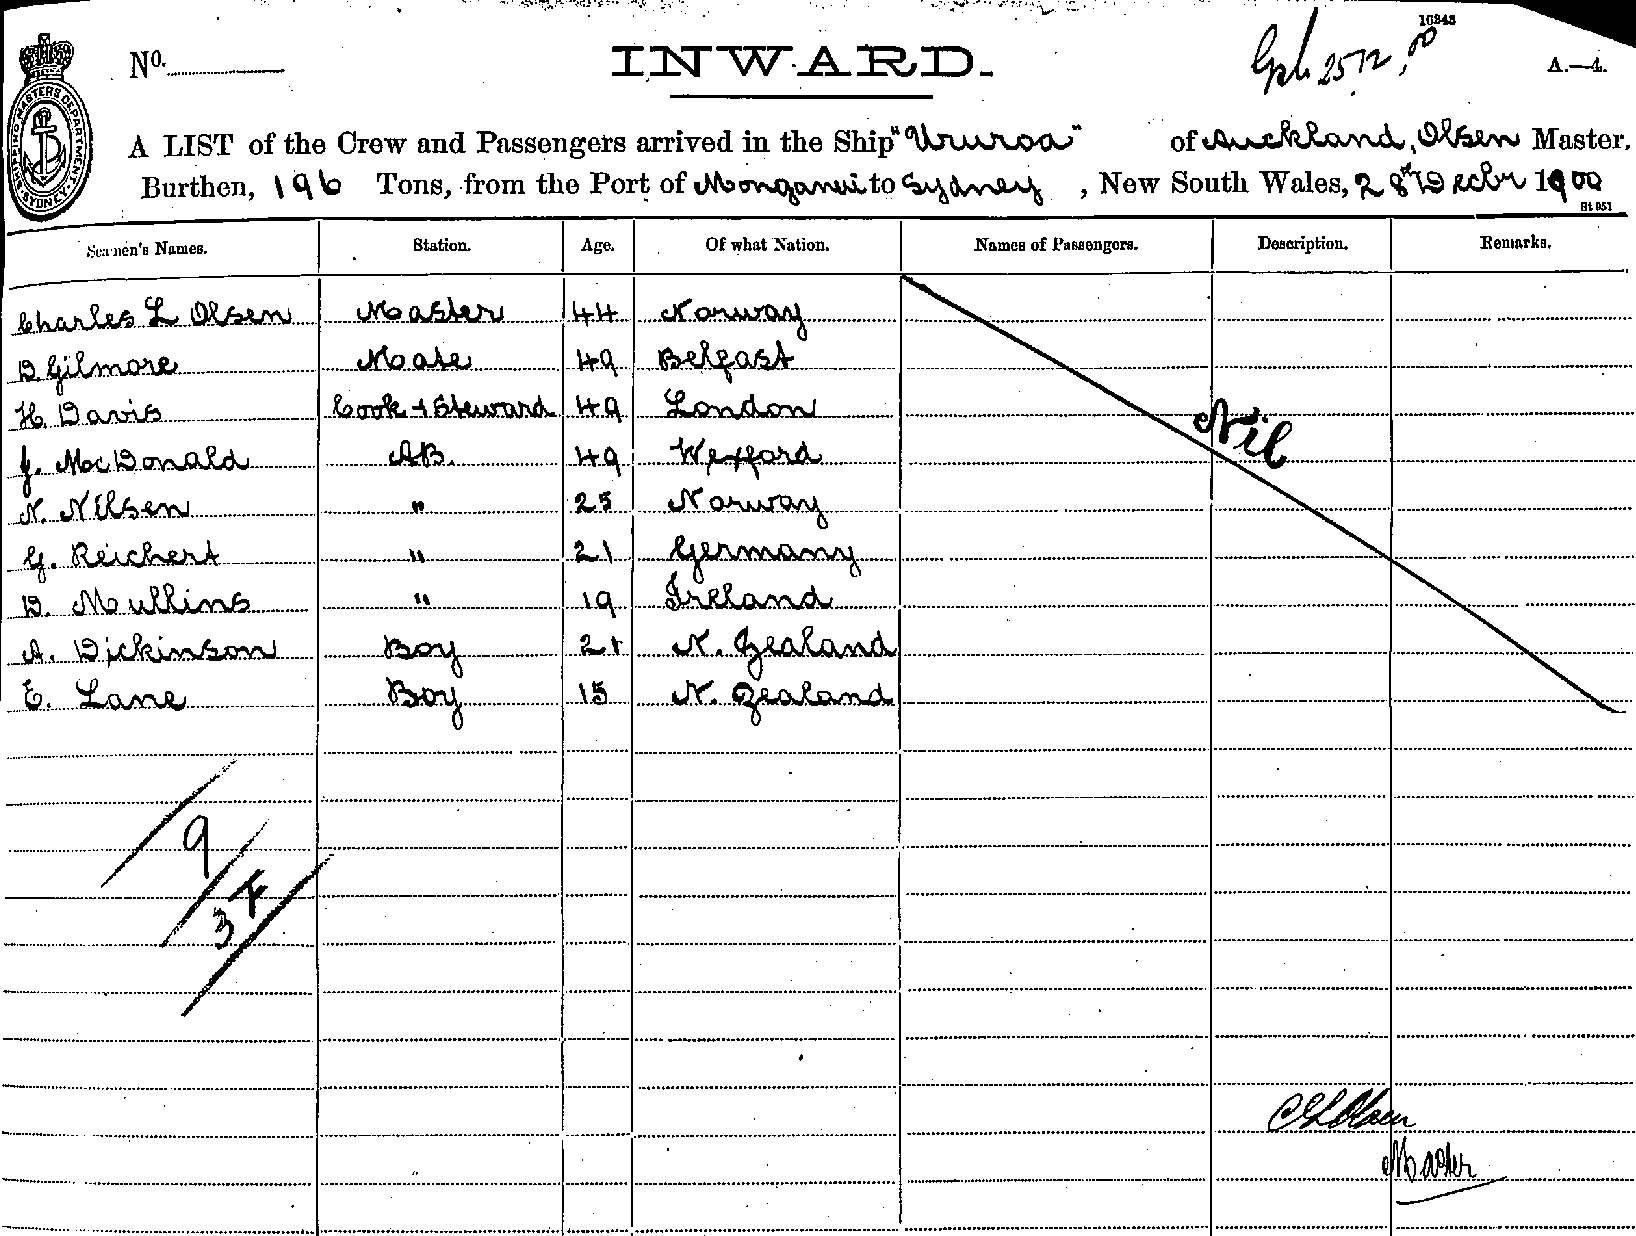 10343
No.
INWARD.
A.—4.
SHIPPING MASTERS DEPARTMENT SYDNEY
A LIST of the Crew and Passengers arrived in the Ship "Ururoa" of Auckland, Olsen Master,
Burthen, 196 Tons, from the Port of Monganui to Sydney, New South Wales, 28th Decbr 1900
St 951
Seamen's Names. Station. Age. Of what Nation. Names of Passengers. Description. Remarks.
Charles L Olsen Master 44 Norway
D. Gilmore Mate 49 Belfast
H. Davis Cook + Steward 49 London
J. MacDonald AB. 49 Wexford
Nil
N. Nilsen " 25 Norway
G. Reichert " 21 Germany
D. Mullins " 19 Ireland
A. Dickinson Boy 21 N. Zealand
E. Lane Boy 15 N. Zealand
9
3 F
C L Olsen
Master